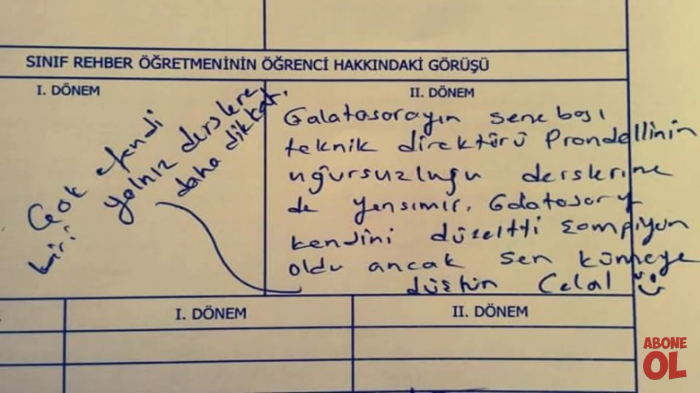 SINIF REHBER ÖĞRETMENİNİN ÖĞRENCİ HAKKINDAKİ GÖRÜŞÜ
I. DÖNEM
Çok efendi
biri yalnız derslere
daha dikkat.
II. DÖNEM
Galatasarayın sene başı
teknik direktörü Prandellinin
uğursuzluğu derslerine
de yansımış. Galatasaray
kendini düzeltti şampiyon
oldu ancak sen kümeye
düştün Celal
I. DÖNEM
II. DÖNEM
ABONE
OL